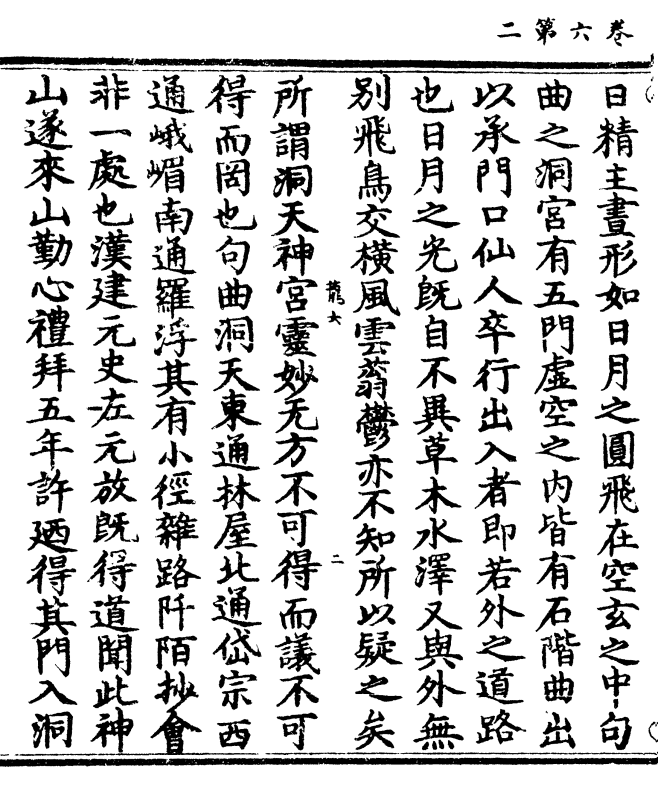 卷六第二
日精主晝形如日月之圓飛在空玄之中句
曲之洞宮有五門虛空之內皆有石階曲出
以承門口仙人卒行出入者即若外之道路
也日月之光既自不異草木水澤又與外無
別飛鳥交橫風雲蓊鬱亦不知所以疑之矣
二
所謂洞天神宮靈妙无方不可得而議不可
得而罔也句曲洞天東通林屋北通岱宗西
通峨嵋南通羅浮其有小徑雜路阡陌抄會
非一處也漢建元史左元放既得道聞此神
山遂來山勤心禮拜五年許廼得其門入洞